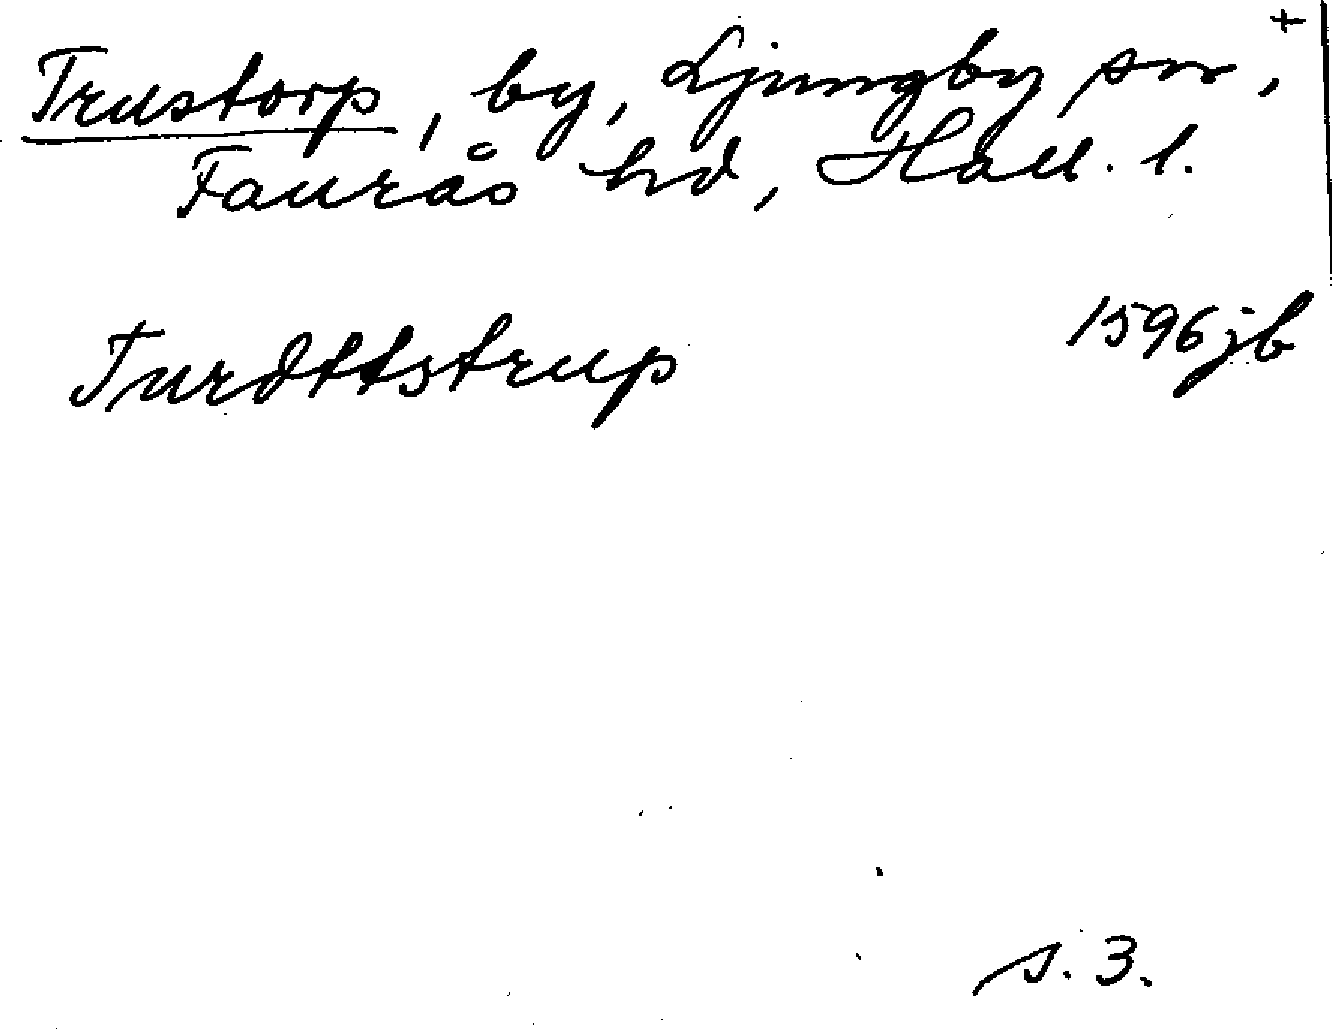 +
Trustorp, by, Ljungby sn,
Faurås hd, Hall. l.
Turdttstrup 1596 jb
s. 3.